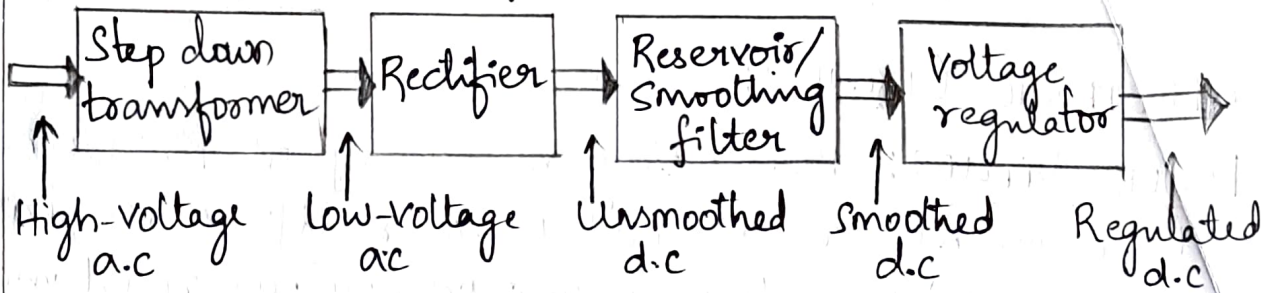 Step down
transformer
Rectifier
Reservoir/
Smoothing
filter
Voltage
regulator
High-voltage
a.c
Low-voltage
a.c
Unsmoothed
d.c
Smoothed
d.c
Regulated
d.c